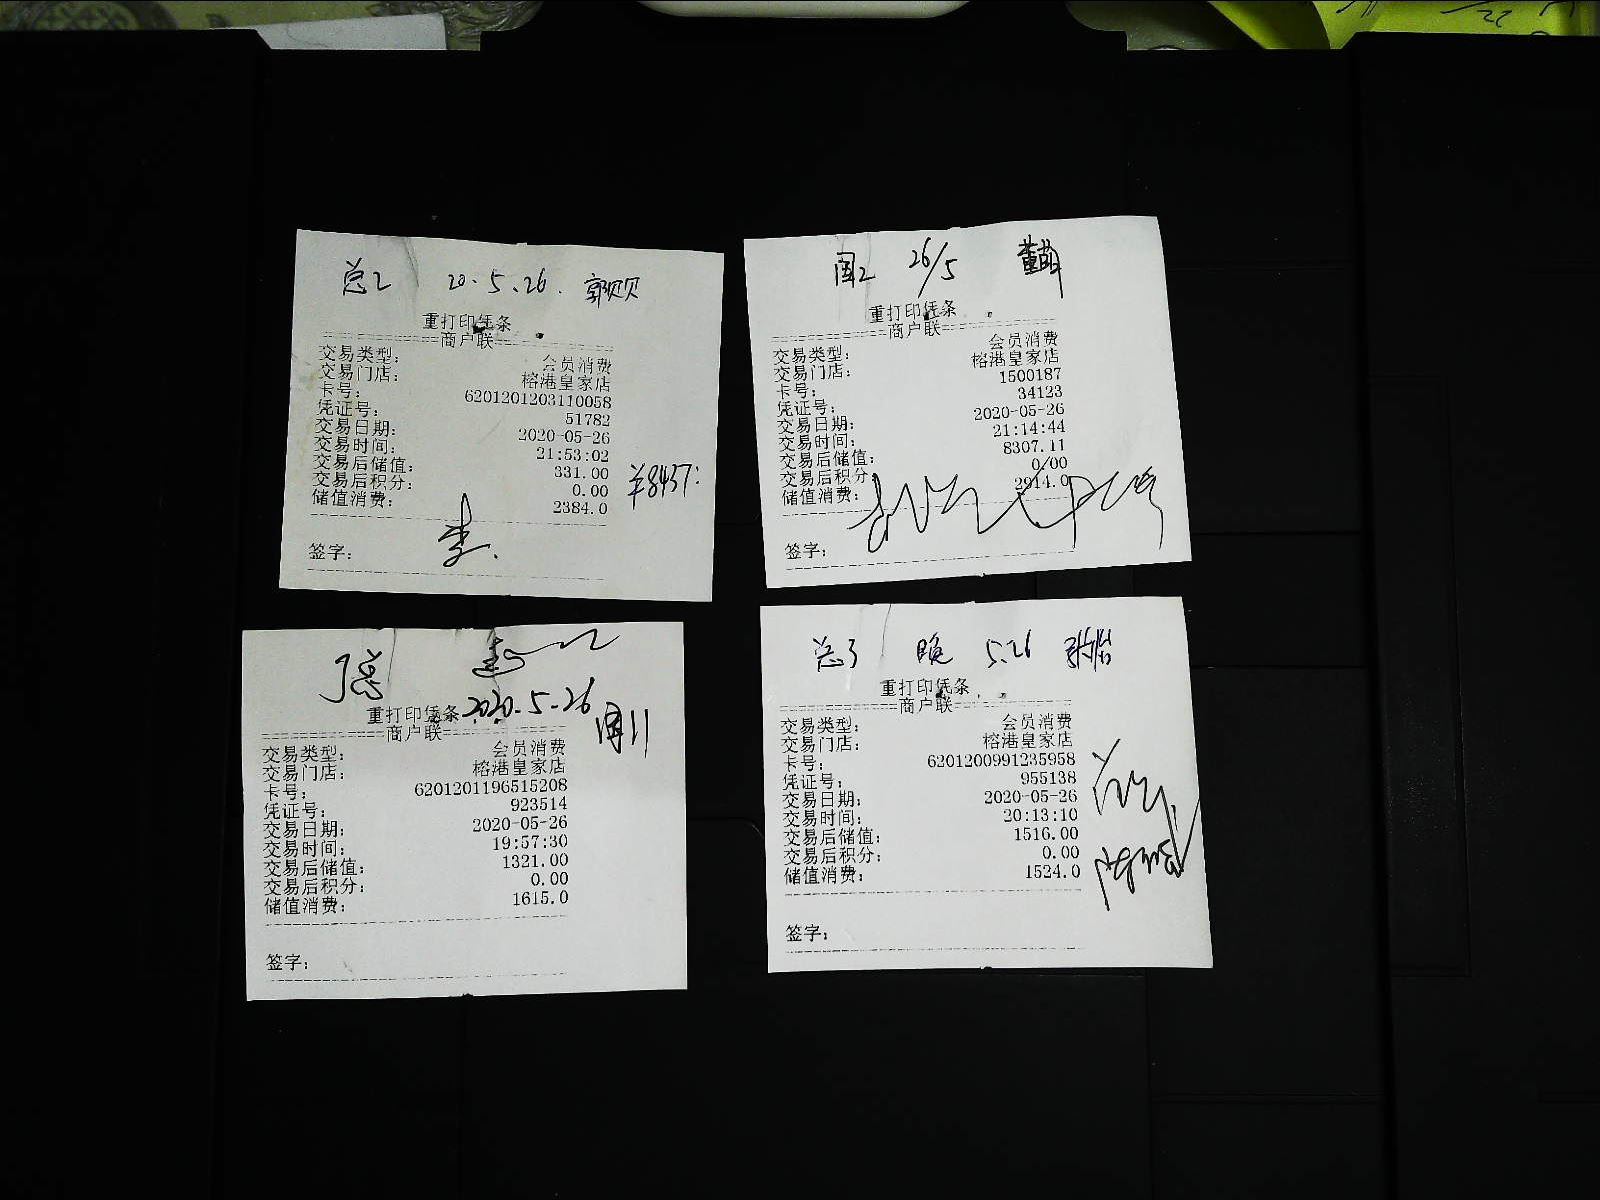 总2 20.5.26. 郭贝贝
重打印凭条
商户联
交易类型: 会员消费
交易门店: 榕港皇家店
卡号: 6201201203110058
凭证号: 51782
交易日期: 2020-05-26
交易时间: 21:53:02
交易后储值: 331.00
交易后积分: 0.00
储值消费: 2384.0
¥8437:
签字: 李.
国2 26/5
重打印凭条
商户联
交易类型: 会员消费
交易门店: 榕港皇家店
卡号: 1500187
凭证号: 34123
交易日期: 2020-05-26
交易时间: 21:14:44
交易后储值: 8307.11
交易后积分 0.00
储值消费: 2914.0
签字:
2020.5-26
重打印凭条
国11
商户联
交易类型: 会员消费
交易门店: 榕港皇家店
卡号: 6201201196515208
凭证号: 923514
交易日期: 2020-05-26
交易时间: 19:57:30
交易后储值: 1321.00
交易后积分: 0.00
储值消费: 1615.0
签字:
总3 晚 5.26
重打印凭条
商户联
交易类型: 会员消费
交易门店: 榕港皇家店
卡号: 6201200991235958
凭证号: 955138
交易日期: 2020-05-26
交易时间: 20:13:10
交易后储值: 1516.00
交易后积分: 0.00
储值消费: 1524.0
签字: